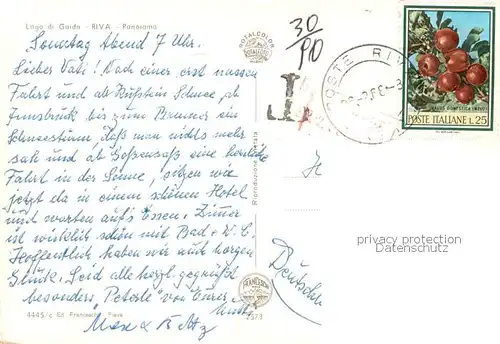 Lago di Garda - RIVA - Panorama
Sonntag Abend 7 Uhr.
Lieber Vati! Nach einer erst nassen
Fahrt und ab Kufstein Schnee, ab
Innsbruck bis zum Brenner ein
Schneesturm, daß man nichts mehr
sah und ab Gossensaß eine herrliche
Fahrt in der Sonne, sitzen wir
jetzt da in einem schönen Hotel
und warten auf's Essen. Zimmer
ist wirklich schön mit Bad + W.C.
Hoffentlich haben wir auch morgen
Glück. Seid alle herzl. gegrüßt
besonders "Peterle" von Eurer
4445/c Ed. Franceschi, Riva
Max &
ROTALCOLOR
30/90
T
POSTE RIVA
MALUS DOMESTICA
POSTE ITALIANE L.25
Riproduzione vietata
Deutschl
FRANCESCHI
privacy protection
Datenschutz